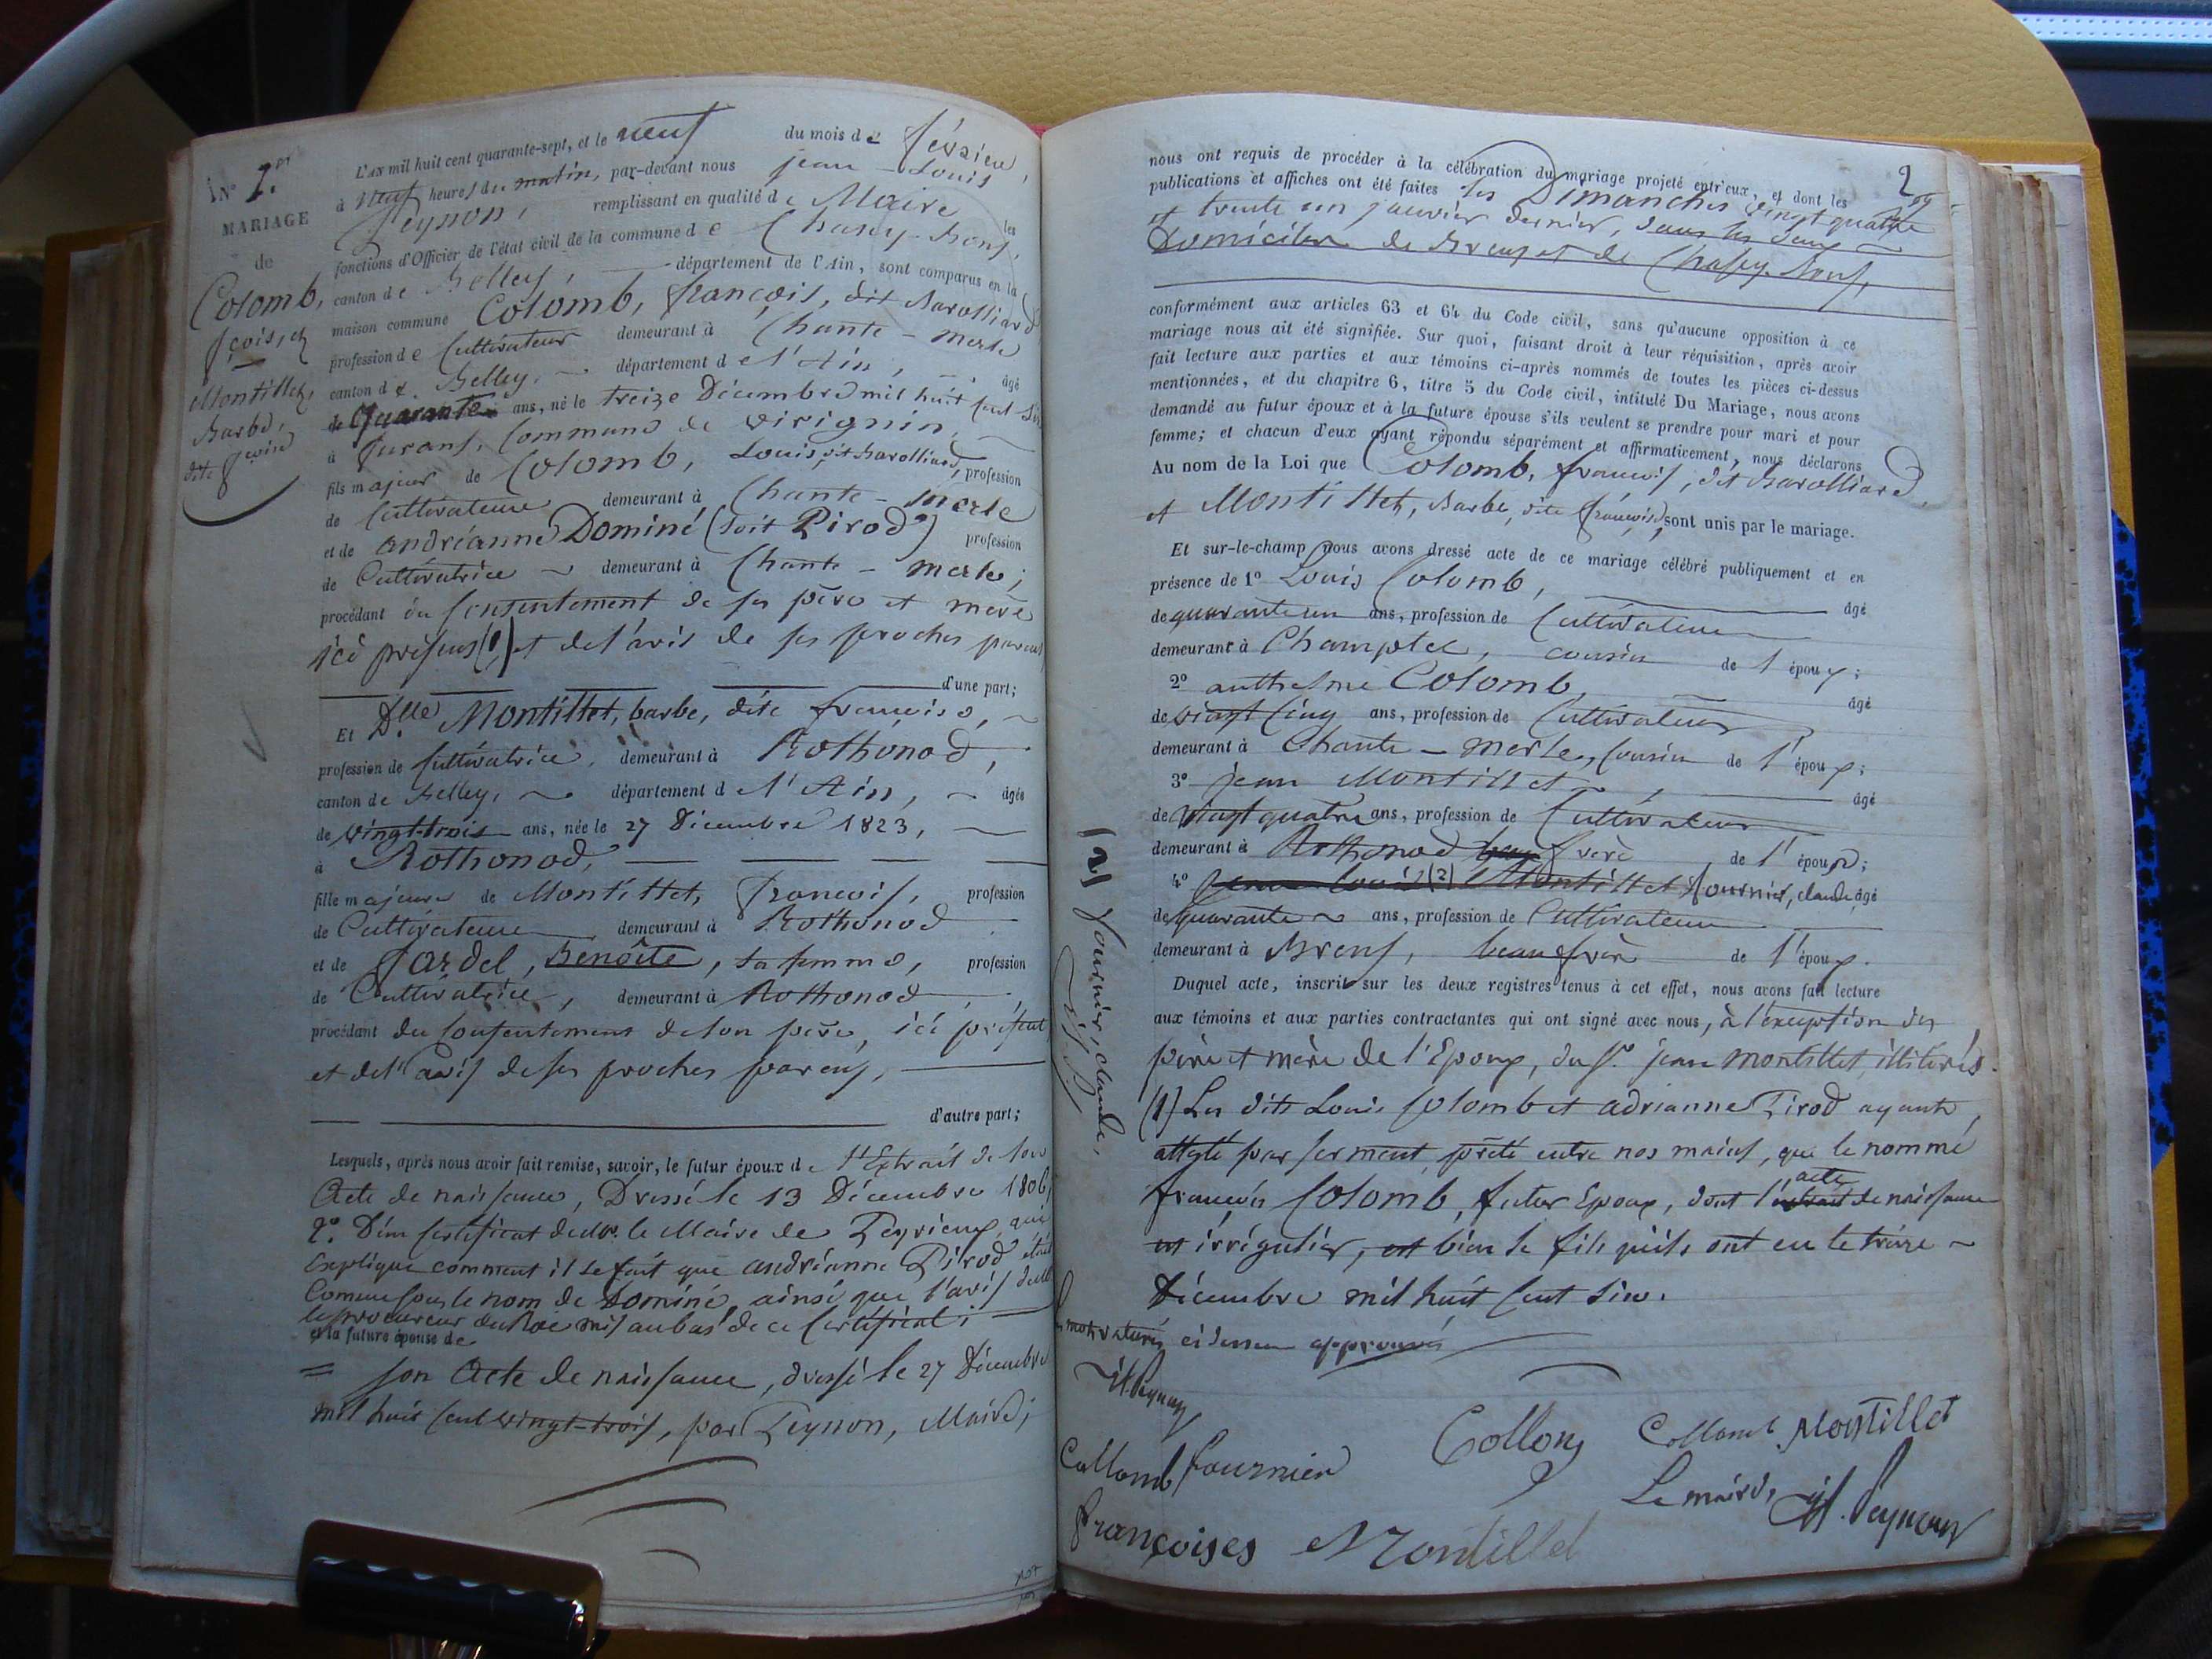 N° 1.er
MARIAGE
de
Colomb,
fçois, et
Montillet,
Barbe,
dite fçoise
L'an mil huit cent quarante-sept, et le neuf du mois de février,
à neuf heures du matin, par-devant nous jean-Louis
Peynon, remplissant en qualité de Maire les
fonctions d'Officier de l'état civil de la commune de Chazey-Bons,
canton de Belley, département de l'Ain, sont comparus en la
maison commune Colomb, françois, dit Barolliard
profession de Cultivateur demeurant à Chante-merle
canton de Belley, département de l'Ain, âgé
de Quarante ans, né le treize Décembre mil huit cent six
à Jurans, Commune de Virignin,
fils majeur de Colomb, Louis, dit Barolliard, profession
de Cultivateur demeurant à Chante-merle
et de andrianne Dominé (soit Pirod) profession
de Cultivatrice demeurant à Chante-merle;
procédant du Consentement de ses père et mère
ici présens (1) et de l'avis de ses proches parens
d'une part;
Et Dlle Montillet, barbe, dite françoise,
profession de Cultivatrice, demeurant à Rothonod,
canton de Belley, département de l'Ain, âgée
de vingt-trois ans, née le 27 Décembre 1823,
à Rothonod,
fille majeure de Montillet, françois, profession
de Cultivateur demeurant à Rothonod
et de Jardel, Benoîte, sa femme, profession
de Cultivatrice, demeurant à Rothonod,
procédant du Consentement de son père, ici présent
et de l'avis de ses proches parens,
d'autre part;
Lesquels, après nous avoir fait remise, savoir, le futur époux de l'Extrait de son
Acte de naissance, Dressé le 13 Décembre 1806,
2°. D'un certificat de Mr. le Maire de Peyrieux, qui
Explique comment il se fait que andrianne Pirod était
Connue sous le nom de Dominé, ainsi que l'avis de Mr
le procureur du Roi mis au bas de ce Certificat;
et la future épouse de
= son Acte de naissance, dressé le 27 Décembre
mil huit cent vingt-trois, par Peynon, Maire;
2
nous ont requis de procéder à la célébration du mariage projeté entr'eux, et dont les
publications et affiches ont été faites les Dimanches vingt quatre
et trente un janvier dernier, dans les deux
Domiciles de Brens et de Chazey-Bons,
conformément aux articles 63 et 64 du Code civil, sans qu'aucune opposition à ce
mariage nous ait été signifiée. Sur quoi, faisant droit à leur réquisition, après avoir
fait lecture aux parties et aux témoins ci-après nommés de toutes les pièces ci-dessus
mentionnées, et du chapitre 6, titre 5 du Code civil, intitulé Du Mariage, nous avons
demandé au futur époux et à la future épouse s'ils veulent se prendre pour mari et pour
femme; et chacun d'eux ayant répondu séparément et affirmativement, nous déclarons
Au nom de la Loi que Colomb, françois, dit Barolliard,
et Montillet, Barbe, dite françoise, sont unis par le mariage.
Et sur-le-champ nous avons dressé acte de ce mariage célébré publiquement et en
présence de 1° Louis Colomb, âgé
de quarante un ans, profession de Cultivateur
demeurant à Champtel, cousin de l'époux;
2° anthelme Colomb, âgé
de vingt cinq ans, profession de Cultivateur
demeurant à Chante-merle, Cousin de l'époux;
3° jean Montillet, âgé
de vingt quatre ans, profession de Cultivateur
demeurant à Rothonod frère de l'épouse;
4° jean Louis (2) Montillet fournier, claude, âgé
de quarante ans, profession de Cultivateur
demeurant à Brens, beau frère de l'époux.
Duquel acte, inscrit sur les deux registres tenus à cet effet, nous avons fait lecture
aux témoins et aux parties contractantes qui ont signé avec nous, à l'exception des
père et mère de l'Epoux, du Sr. jean Montillet, illitérés.
(1) Les dits Louis Colomb et adrianne Pirod ayants
attesté par serment, prêté entre nos mains, que le nommé
françois Colomb, futur Epoux, dont l'extrait acte de naissance
est irrégulier, est bien le fils qu'ils ont eu le treize
Décembre mil huit cent six.
mots raturés ci dessus approuvés
(2) fournier, claude,
Collomb fournier Collomb Collomb Montillet
Le maire, Peynon
françoises Montillet